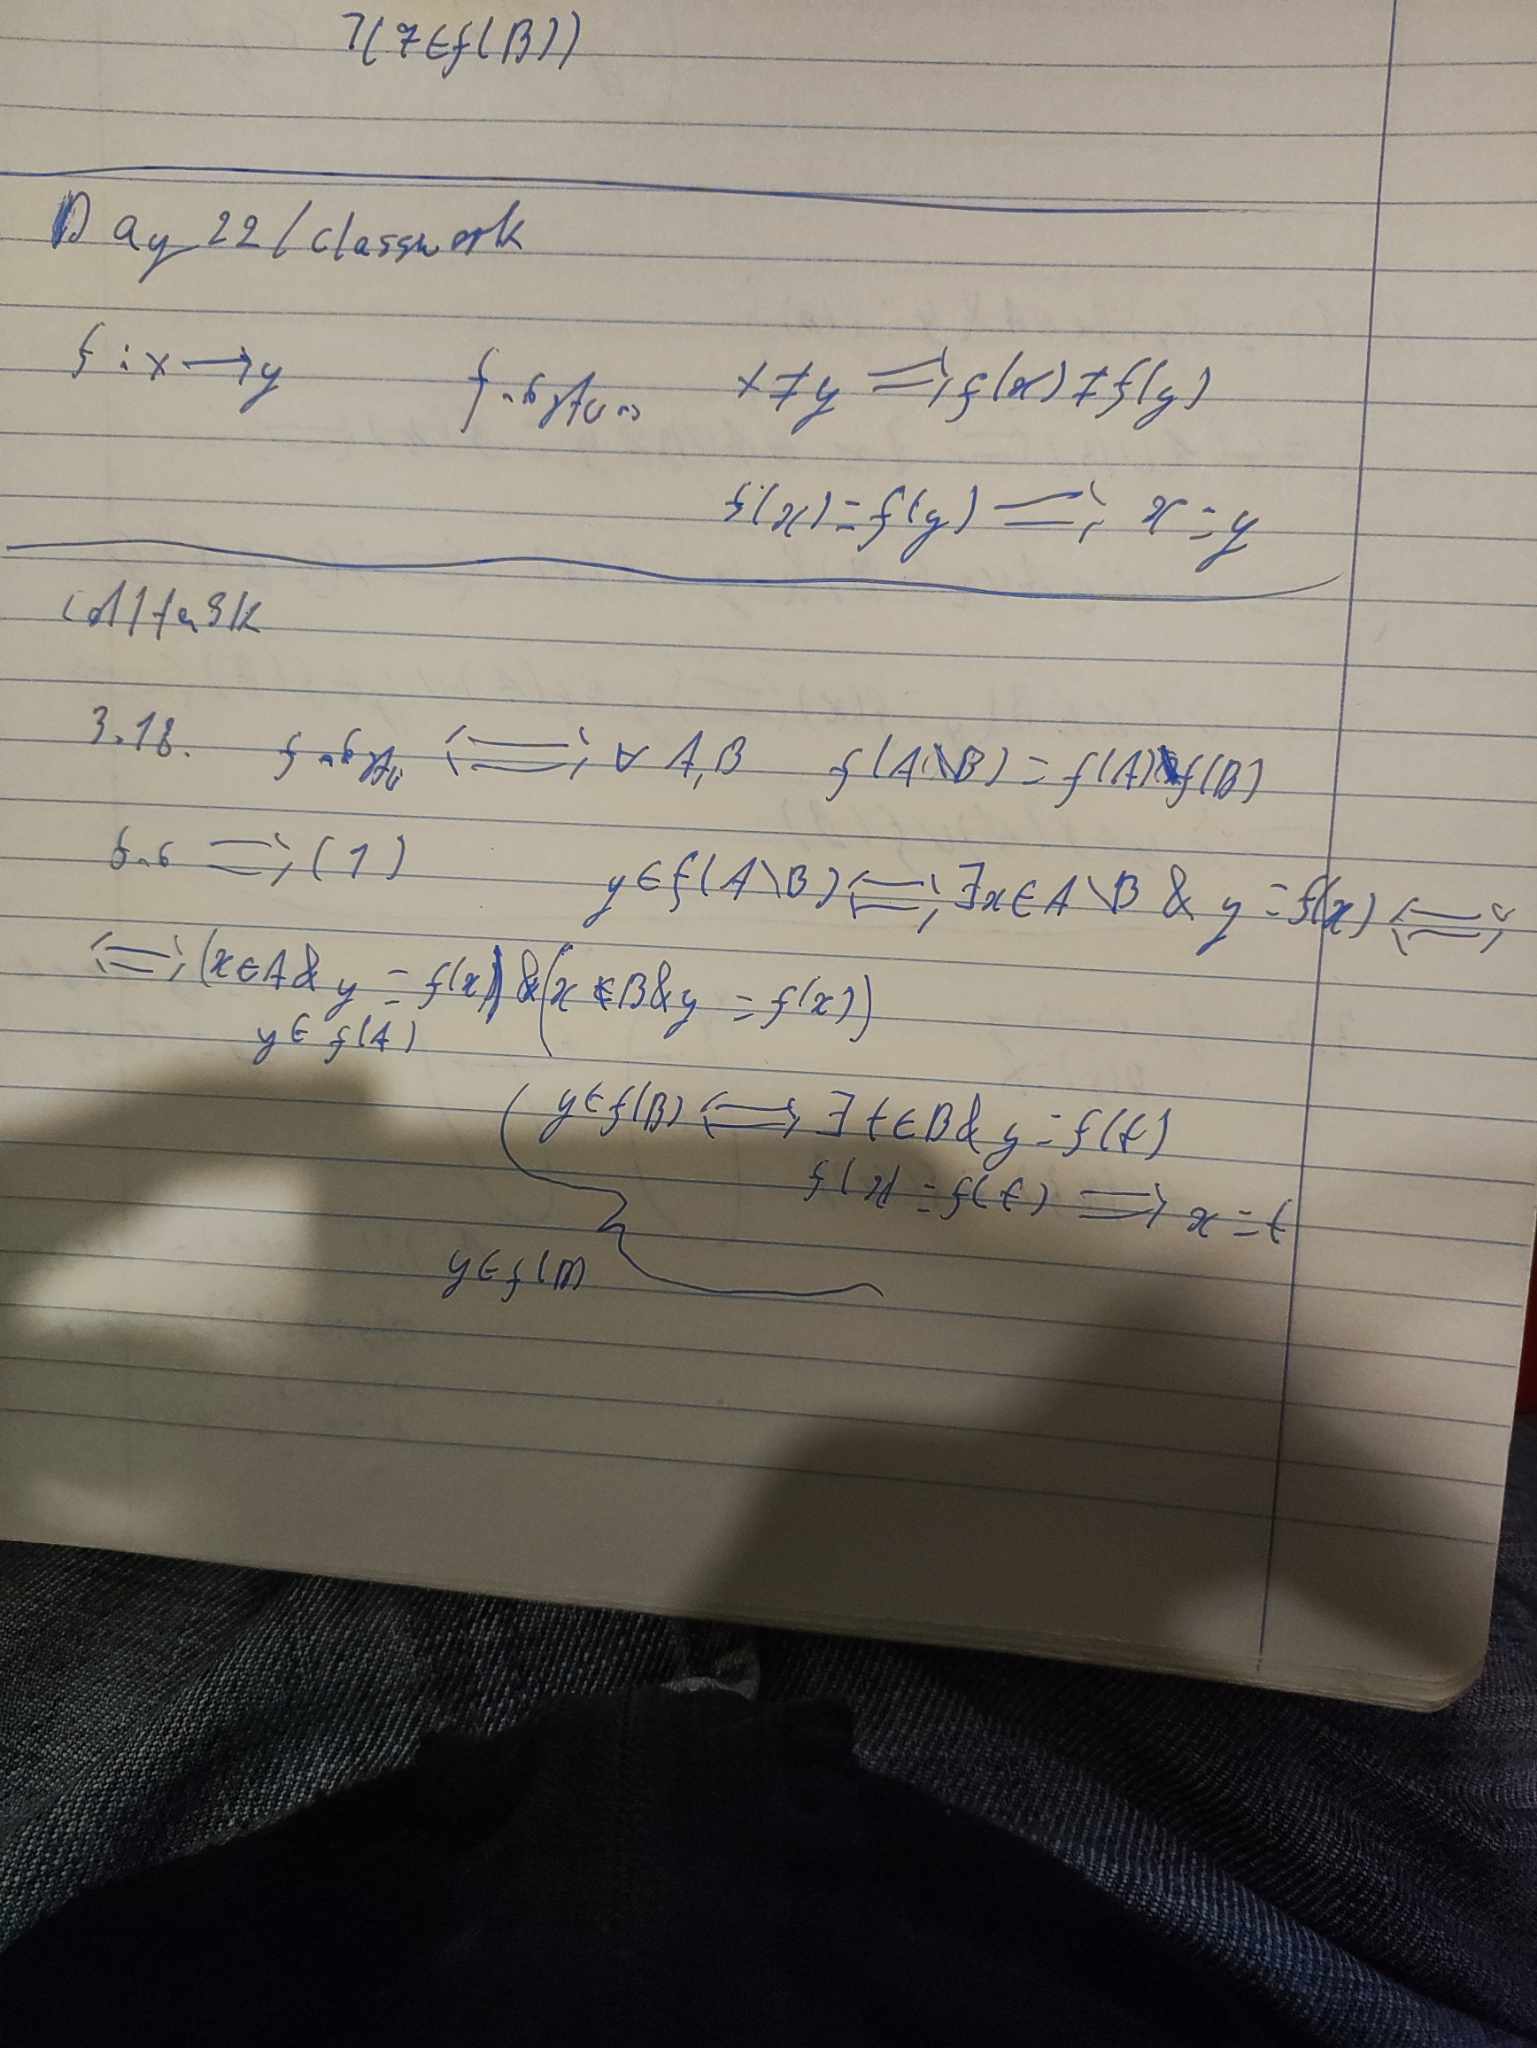 7(7∈f(B))
Day 22/classwork
f:x→y x≠y ⟹ f(x)≠f(y)
f(x)=f(y) ⟹ x=y
3.18. f ⟺ ∀ A,B f(A\B)=f(A)\f(B)
⟹ (1) y∈f(A\B) ⟺ ∃x∈A\B & y=f(x) ⟺
⟺ (x∈A & y=f(x)) & (x ∉ B & y=f(x))
y∈f(A)
y∈f(B) ⟺ ∃t∈B & y=f(t)
f(x)=f(t) ⟹ x=t
y∈f(B)